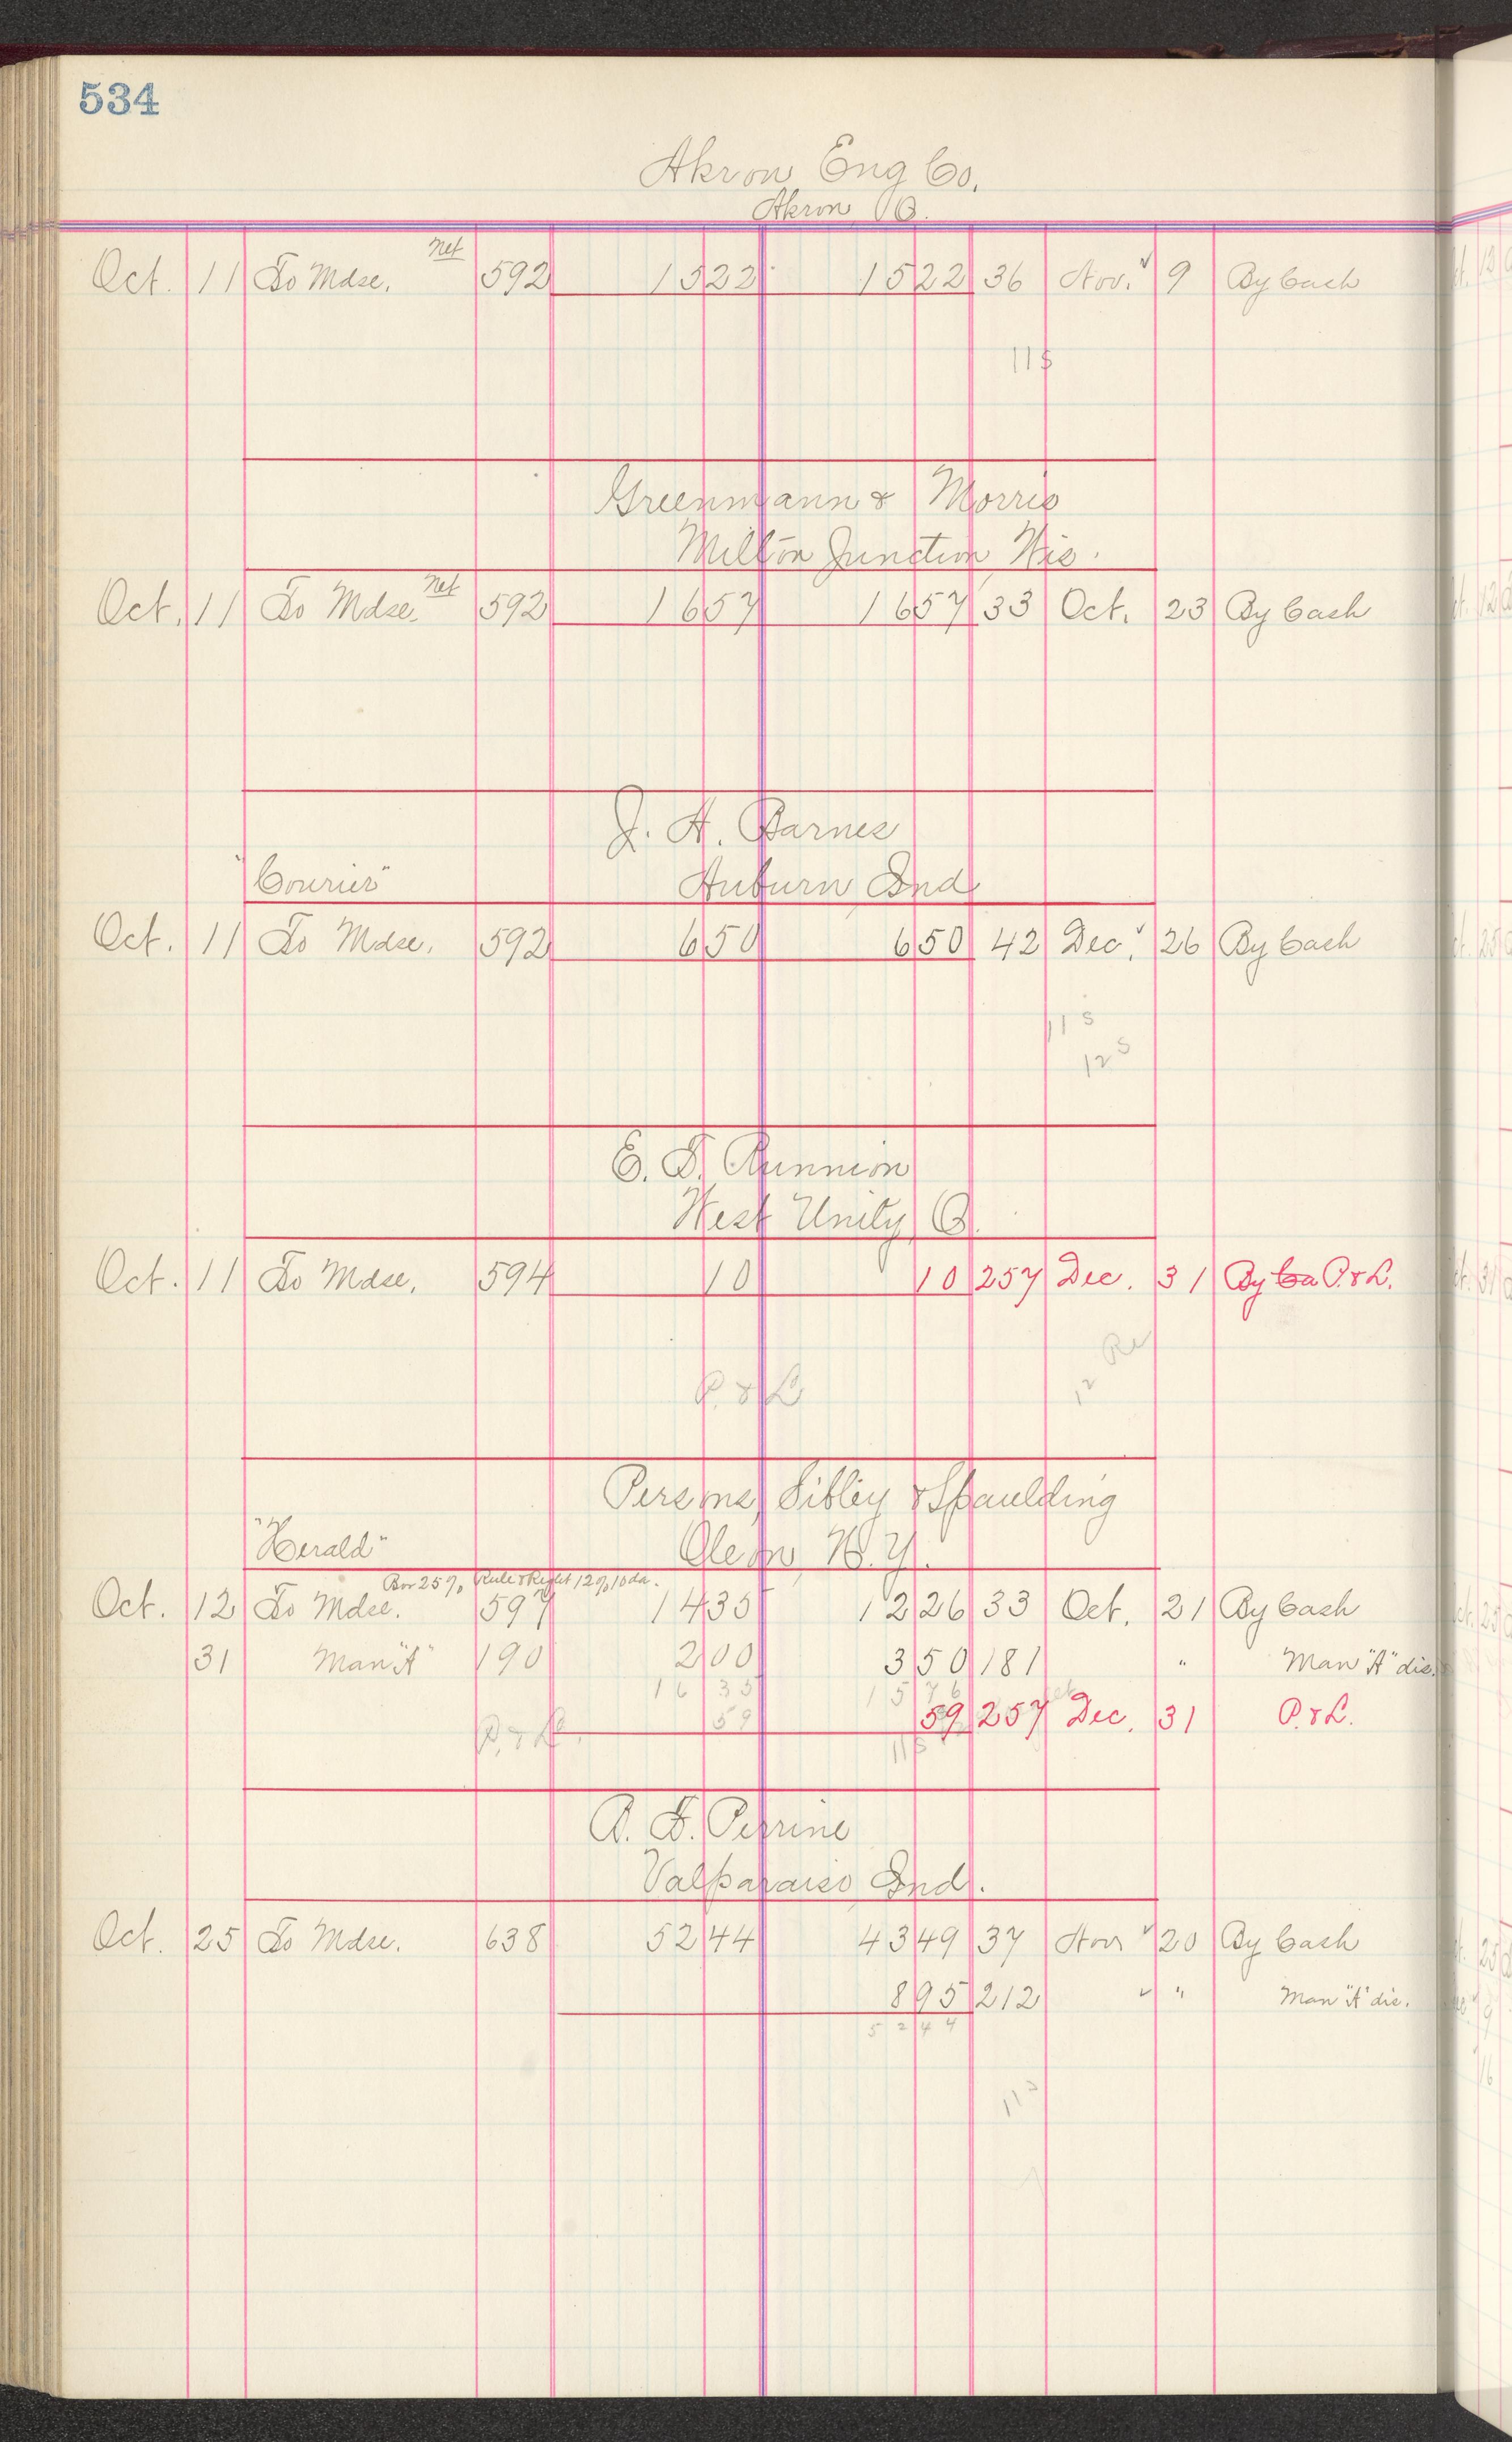 534
Akron Eng Co.
Akron O.
Net
Oct. 11 To Mdse. 592 15 22 15 22 36 Nov. 9 By Cash
115
Greenmann & Morris
Milton Junction Wis.
Net
Oct. 11 To Mdse. 592 16 57 16 57 33 Oct. 23 By Cash
J. A. Barnes
"Courier" Auburn Ind
Oct. 11 To Mdse. 592 6 50 6 50 42 Dec. 26 By Cash
11 5
12 5
E. F. Runnion
West Unity O.
Oct. 11 To Mdse. 594 10 10 257 Dec. 31 By Ca P. & L.
12 Re
P. & L
Persons, Sibley & Spaulding
"Herald" Olean N.Y.
Bor 25%, Rule & Right 12% 10 da.
Oct. 12 To Mdse. 597 14 35 12 26 33 Oct. 21 By Cash
31 Man "A" 190 2 00 3 50 181 " Man "A" dis.
16 35 15 76
59 59 257 Dec. 31 P. & L.
P. & L. 115
A. F. Perrine
Valparaiso Ind.
Oct. 25 To Mdse. 638 52 44 43 49 37 Nov 20 By Cash
8 95 212 " Man "A" dis.
52 44
11